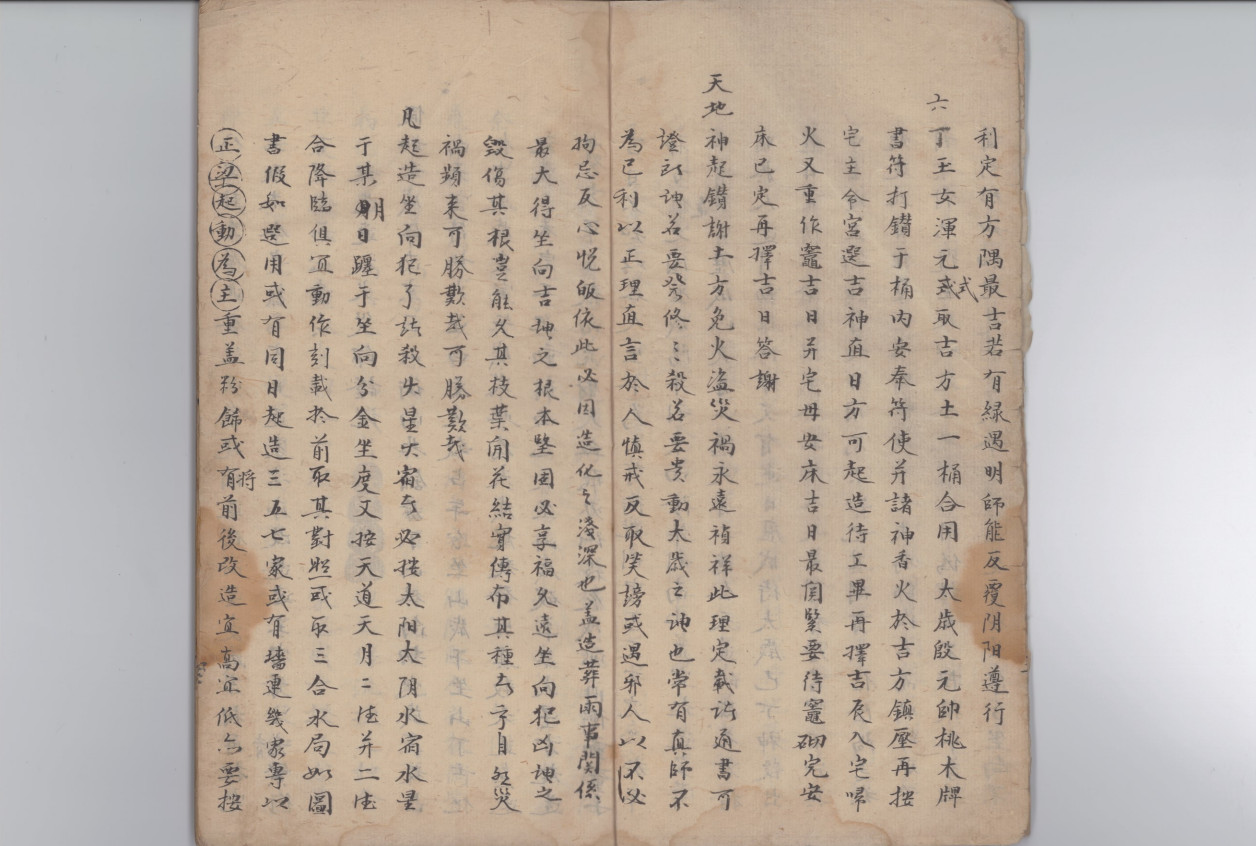 利定有方隅最吉若有緑遇明師能反覆阴阳遵行
六丁玉女渾元式取吉方土一桶合用太歲殷元帥桃木牌
書符打鑽于桶内安奉符使并諸神香火於吉方鎮壓再按
宅主令宮选吉神直日方可起造待工畢再擇吉辰入宅归
火又重作竈吉日并宅母安床吉日最関緊要待竈砌完安
床已定再擇吉日答謝
天地神起鑽謝土方免火盗災禍永遠禎祥此理定載諸通書可
證諸诀若要發修〻殺若要贵動太歲之诀也常有真師不
為已利以正理直言於人慎戒反取笑謗或遇邪人以不必
拘忌反心悦皈依此必因造化之淺深也盖造葬兩事関係
最大得坐向吉坤之根本堅固必享福久遠坐向犯凶坤之
毁傷其根豈能久其枝葉開花結實傳布其種
禍踴来可勝歎哉可勝歎哉
凡起造坐向犯了諸殺大星大宿必按太阳太阴水宿水星
于某月日躔于坐向分金坐度又按天道天月二德并二德
合降臨俱宜動作刻載於前取其對照或取三合水局如圖
書假如选用或有同日起造三五七家或有墻連幾家專以
正梁起動為主重盖粉飾或有将前後改造宜高宜低亦要按